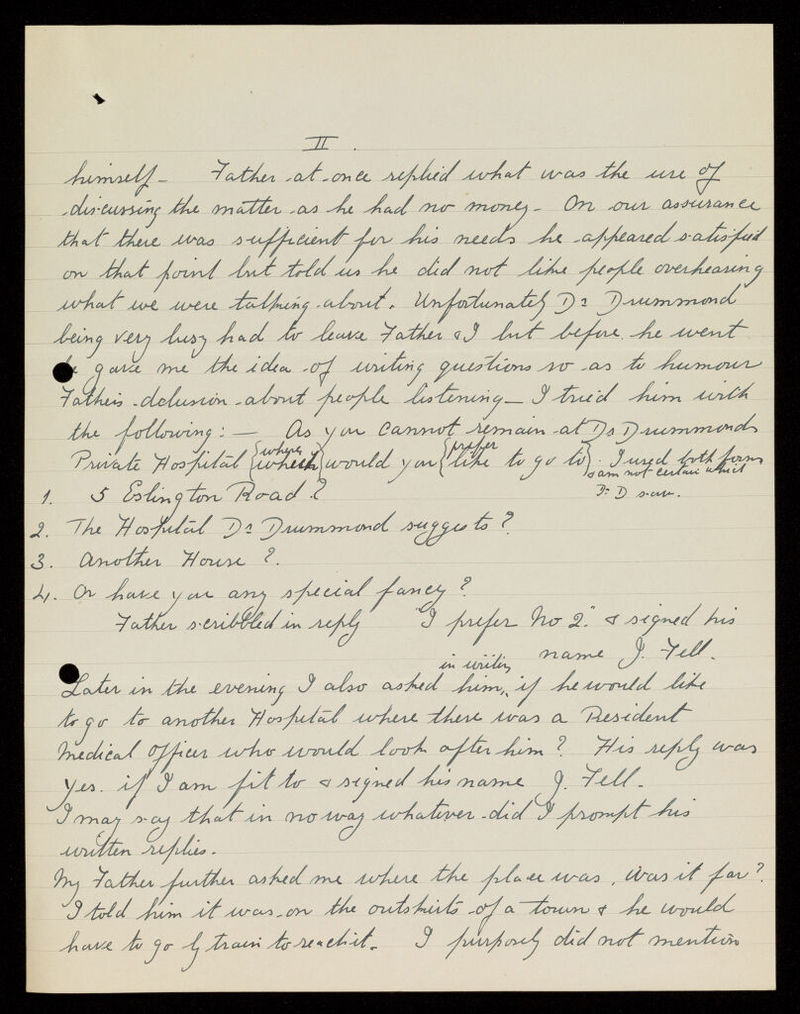 II.
himself - Father at once replied what was the use of
discussing the matter as he had no money - On our assurance
that there was sufficient for his needs he appeared satisfied
on that point but told us he did not like people overhearing
what we were talking about. Unfortunately Dr Drummond
being very busy had to leave Father & I but before he went
he gave me the idea of writing questions so as to humour
Father's delusion about people listening - I tried him with
the following: — As you cannot remain at Dr Drummonds
Private Hospital {where which} would you {prefer like to go to}. I used both forms
& am not certain which
Dr D saw.
1. 5 Eslington Road?
2. The Hospital Dr Drummond suggests?
3. Another House?
4. Or have you any special fancy?
Father scribbled in reply "I prefer No 2." & signed his
name J. Fell.
Later in the evening I also asked him, in writing if he would like
to go to another Hospital where there was a Resident
Medical Officer who would look after him? His reply was
Yes. if I am fit to & signed his name J. Fell -
I may say that in no way whatever did I prompt his
written replies.
My Father further asked me where the place was, was it far?
I told him it was on the outskirts of a town & he would
have to go by train to reach it. I purposely did not mention